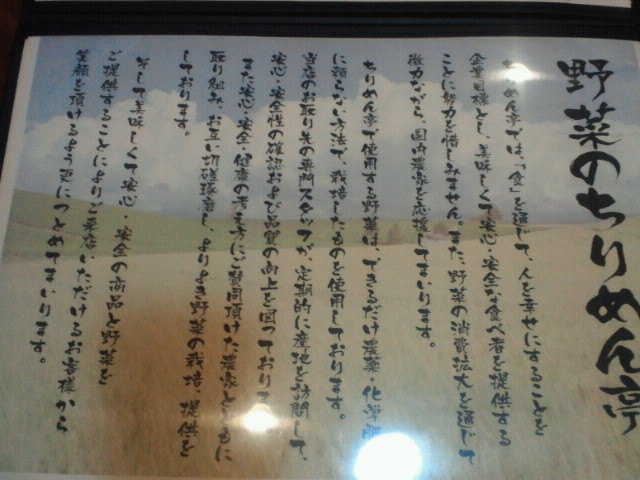 野菜のちりめん亭
ちりめん亭では、「食」を通じて、人を幸せにすることを
企業目標とし、美味しくて安心・安全な食べ物を提供する
ことに努力を惜しみません。また、野菜の消費拡大を通じて
微力ながら、国内農家を応援してまいります。
ちりめん亭で使用する野菜は、できるだけ農薬・化学肥
に頼らない方法で、栽培したものを使用しております。
当店のお取り先の専門スタッフが、定期的に産地を訪問して、
安心・安全性の確認および品質の向上を図っておりま
また安心・安全・健康の考え方にご賛同頂けた農家とともに
取り組み、お互い切磋琢磨し、よりよき野菜の栽培、提供を
しております。
そして美味しくて安心・安全の商品と野菜を
ご提供することによりご来店いただけるお客様から
笑顔を頂けるよう更につとめてまいります。